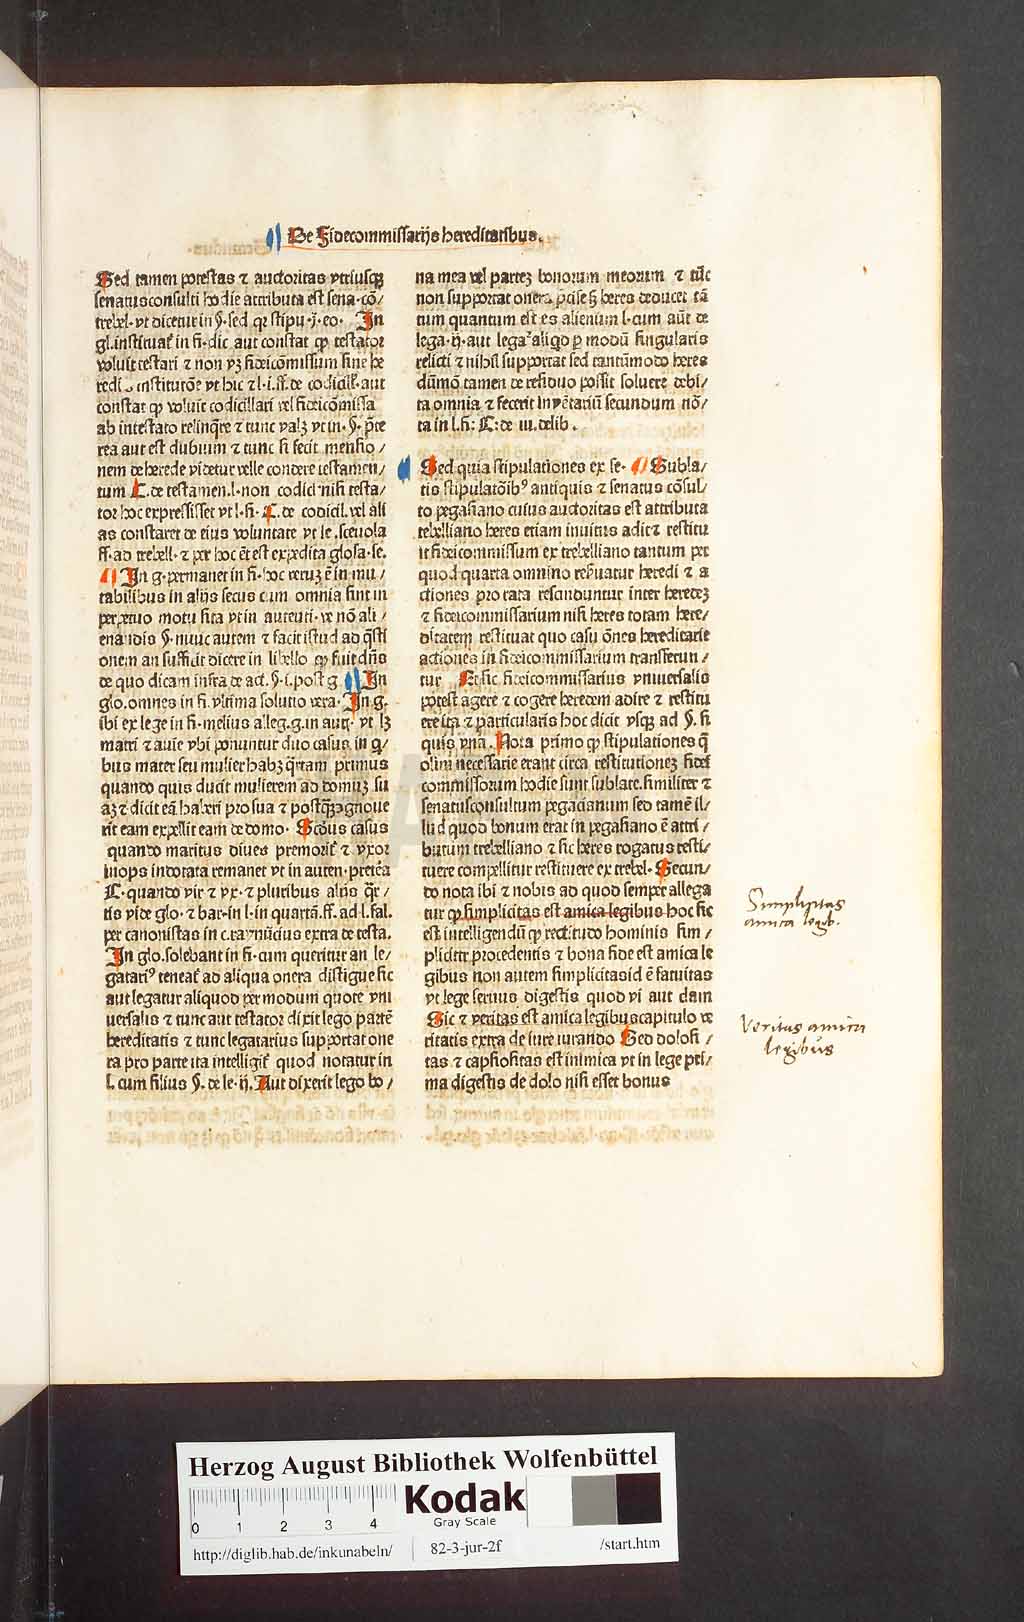 De Fidecommissarijs hereditatibus.
Sed tamen potestas ⁊ auctoritas vtriusqꝫ
senatusconsulti hodie attributa est sena. cō/
trebel. vt dicetur in §. sed qꝛ stipu. j. eo. In
gl. instituat̉ in fi. dic aut constat ꝙ testator
voluit testari ⁊ non vꝫ fideicōmissum sine he
redis institutōe vt hic ⁊ l. i. ff. de codicil̉. aut
constat ꝙ voluit codicillari vel fideicōmissa
ab intestato relinq̄re ⁊ tunc valꝫ vt in. §. p̄te
rea aut est dubium ⁊ tunc si fecit mensio/
nem de herede videtur velle condere testamen/
tum C. de testamen. l. non codicil nisi testa/
tor hoc expressisset vt l. fi. C. de codicil. vel ali
as constaret de eius voluntate vt le. sceuola
ff. ad trebell. ⁊ per hoc ēt est expedita glosa. se.
In g. permanet in fi. hoc veruꝫ ē in mu/
tabilibus in alijs secus cum omnia sint in
perpetuo motu sita vt in autenti. vt nō ali/
enandis §. nunc autem ⁊ facit istud ad q̄sti
onem an sufficit dicere in libello ꝙ fuit dn̄s
de quo dicam infra de act. §. i. post g In
glo. omnes in fi. vltima solutio vera. In g.
ibi ex lege in fi. melius alleg. g. in aut̉. vt lꝫ
matri ⁊ auie vbi ponuntur duo casus in q̄/
bus mater seu mulier habꝫ q̄rtam primus
quando quis ducit mulierem ad domuꝫ su
aꝫ ⁊ dicit eā haberi pro sua ⁊ postq̄ꝫ ꝯgnoue
rit eam expellit eam de domo. Scd̄us casus
quando maritus diues premorit̉ ⁊ vxor
inops indotata remanet vt in auten. preterea
C. quando vir ⁊ vx. ⁊ pluribus aliis q̄r/
tis vide glo. ⁊ bar. in l. in quartā. ff. ad l. fal.
per canonistas in c. raynucius extra de testa.
In glo. solebant in fi. cum queritur an le/
gatariꝰ teneat̉ ad aliqua onera distigue sic
aut legatur aliquod per modum quote vni
uersalis ⁊ tunc aut testator dixit lego partē
hereditatis ⁊ tunc legatarius supportat one
ra pro parte ita intelligit̉ quod notatur in
l. cum filius §. de le. ij. Aut dixerit lego bo/
na mea vel parteꝫ bonorum meorum ⁊ tūc
non supportat onera p̄cise sꝫ heres deducet tā
tum quantum est es alienum l. cum aut̄ de
lega. ij. aut legat̉ aliqd p modū singularis
relicti ⁊ nihil supportat sed tantūmodo heres
dūmō tamen de residuo possit soluere debi/
ta omnia ⁊ fecerit inuētariū secundum nō/
ta in l. fi: C: de iu. delib.
Sed quia stipulationes ex se. Subla/
tis stipulatōibꝰ antiquis ⁊ senatus cōsul/
to pegasiano cuius auctoritas est attributa
trebelliano heres etiam inuitus adit ⁊ restitu
it fideicommissum ex trebelliano tantum pet
quod quarta omnino reẜuatur heredi ⁊ a
ctiones pro rata resanduntur inter heredeꝫ
⁊ fideicommissarium nisi heres totam here/
ditatem restituat quo casu ōnes hereditarie
actiones in fideicommissarium transferun/
tur Et sic fideicommissarius vniuersalis
potest agere ⁊ cogere heredem adire ⁊ restitu
ere ita ⁊ particularis hoc dicit vsqꝫ ad §. si
quis vna. Nota primo ꝙ stipulationes q̄
olim necessarie erant circa restitutioneꝫ fidei
commissorum hodie sunt sublate. similiter ⁊
senatusconsultum pegasianum sed tamē il/
lud quod bonum erat in pegasiano ē attri/
butum trebelliano ⁊ sic heres rogatus resti/
tuere compellitur restituere ex trebel. Secun/
do nota ibi ⁊ nobis ad quod semper allega
tur ꝙ simplicitas est amica legibus hoc sic
est intelligendū ꝙ rectitudo hominis sim/
pliciter procedentis ⁊ bona fide est amica le
gibus non autem simplicitas id ē fatuitas
vt lege seruus digestis quod vi aut clam
Sic ⁊ veritas est amica legibus capitulo ve
ritatis extra de iure iurando Sed dolosi/
tas ⁊ captiositas est inimica vt in lege pri/
ma digestis de dolo nisi esset bonus
Simplicitas
amica legib.
Veritas amica
legibus
Herzog August Bibliothek Wolfenbüttel
0 1 2 3 4
Kodak
Gray Scale
http://diglib.hab.de/inkunabeln/ 82-3-jur-2f /start.htm
HAB